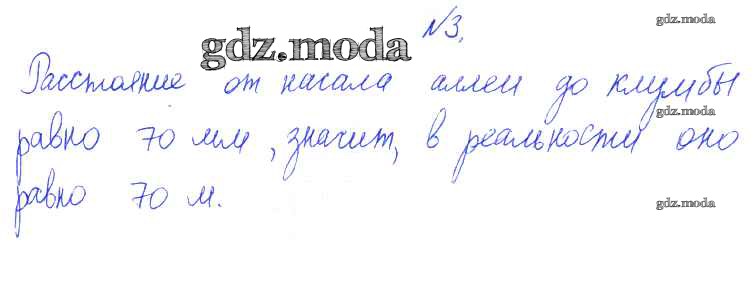 №3.
gdz.moda
gdz.moda
Расстояние от начала аллеи до клумбы
gdz.moda
равно 70 мм, значит, в реальности оно
равно 70 м.
gdz.moda